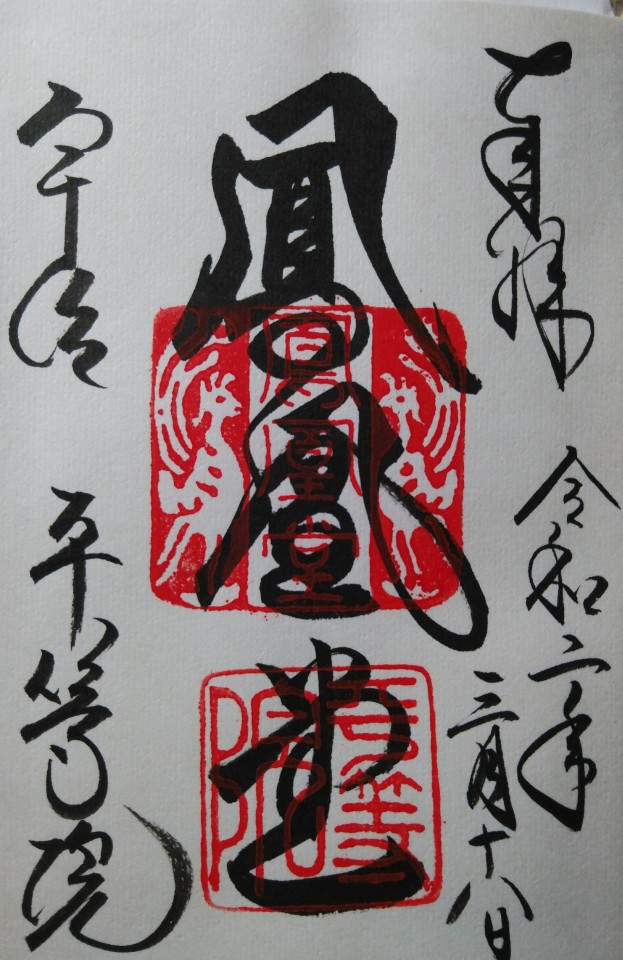 拝 令和二年
三月十八日
鳳凰堂
宇治 平等院
鳳凰堂
平等院